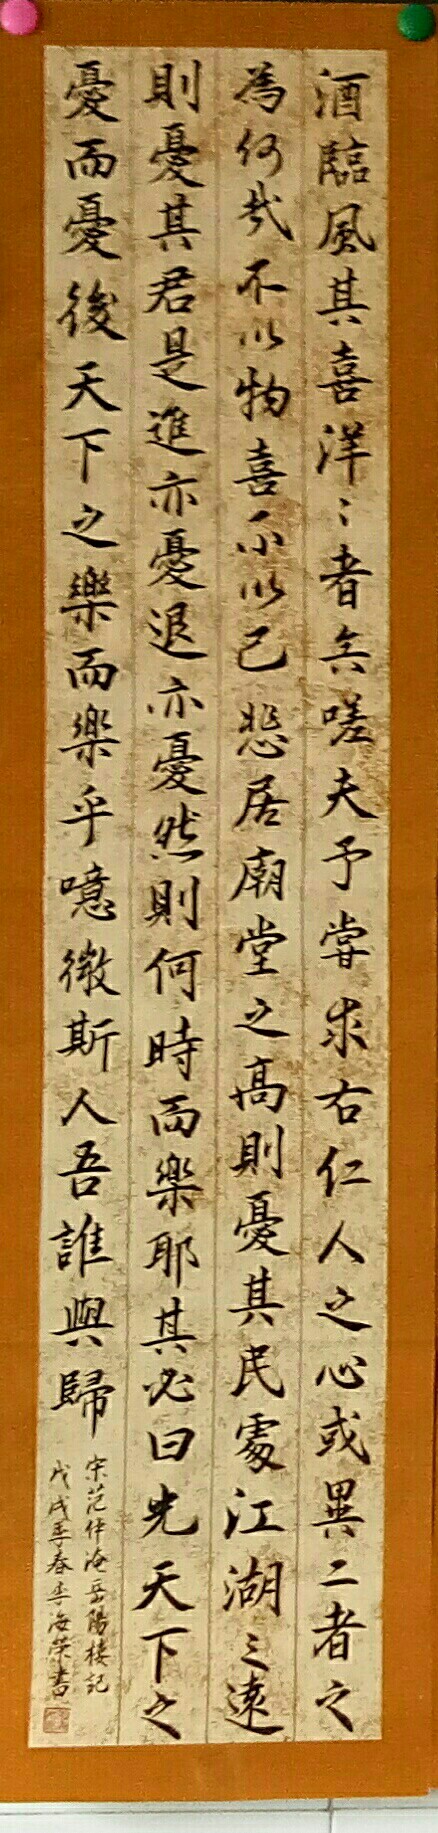 酒臨風其喜洋〻者矣嗟夫予嘗求古仁人之心或異二者之
為何哉不以物喜不以己悲居廟堂之高則憂其民處江湖之遠
則憂其君是進亦憂退亦憂然則何時而樂耶其必曰先天下之
憂而憂後天下之樂而樂乎噫微斯人吾誰與歸
宋范仲淹岳陽樓記
戊戌年春李海榮書